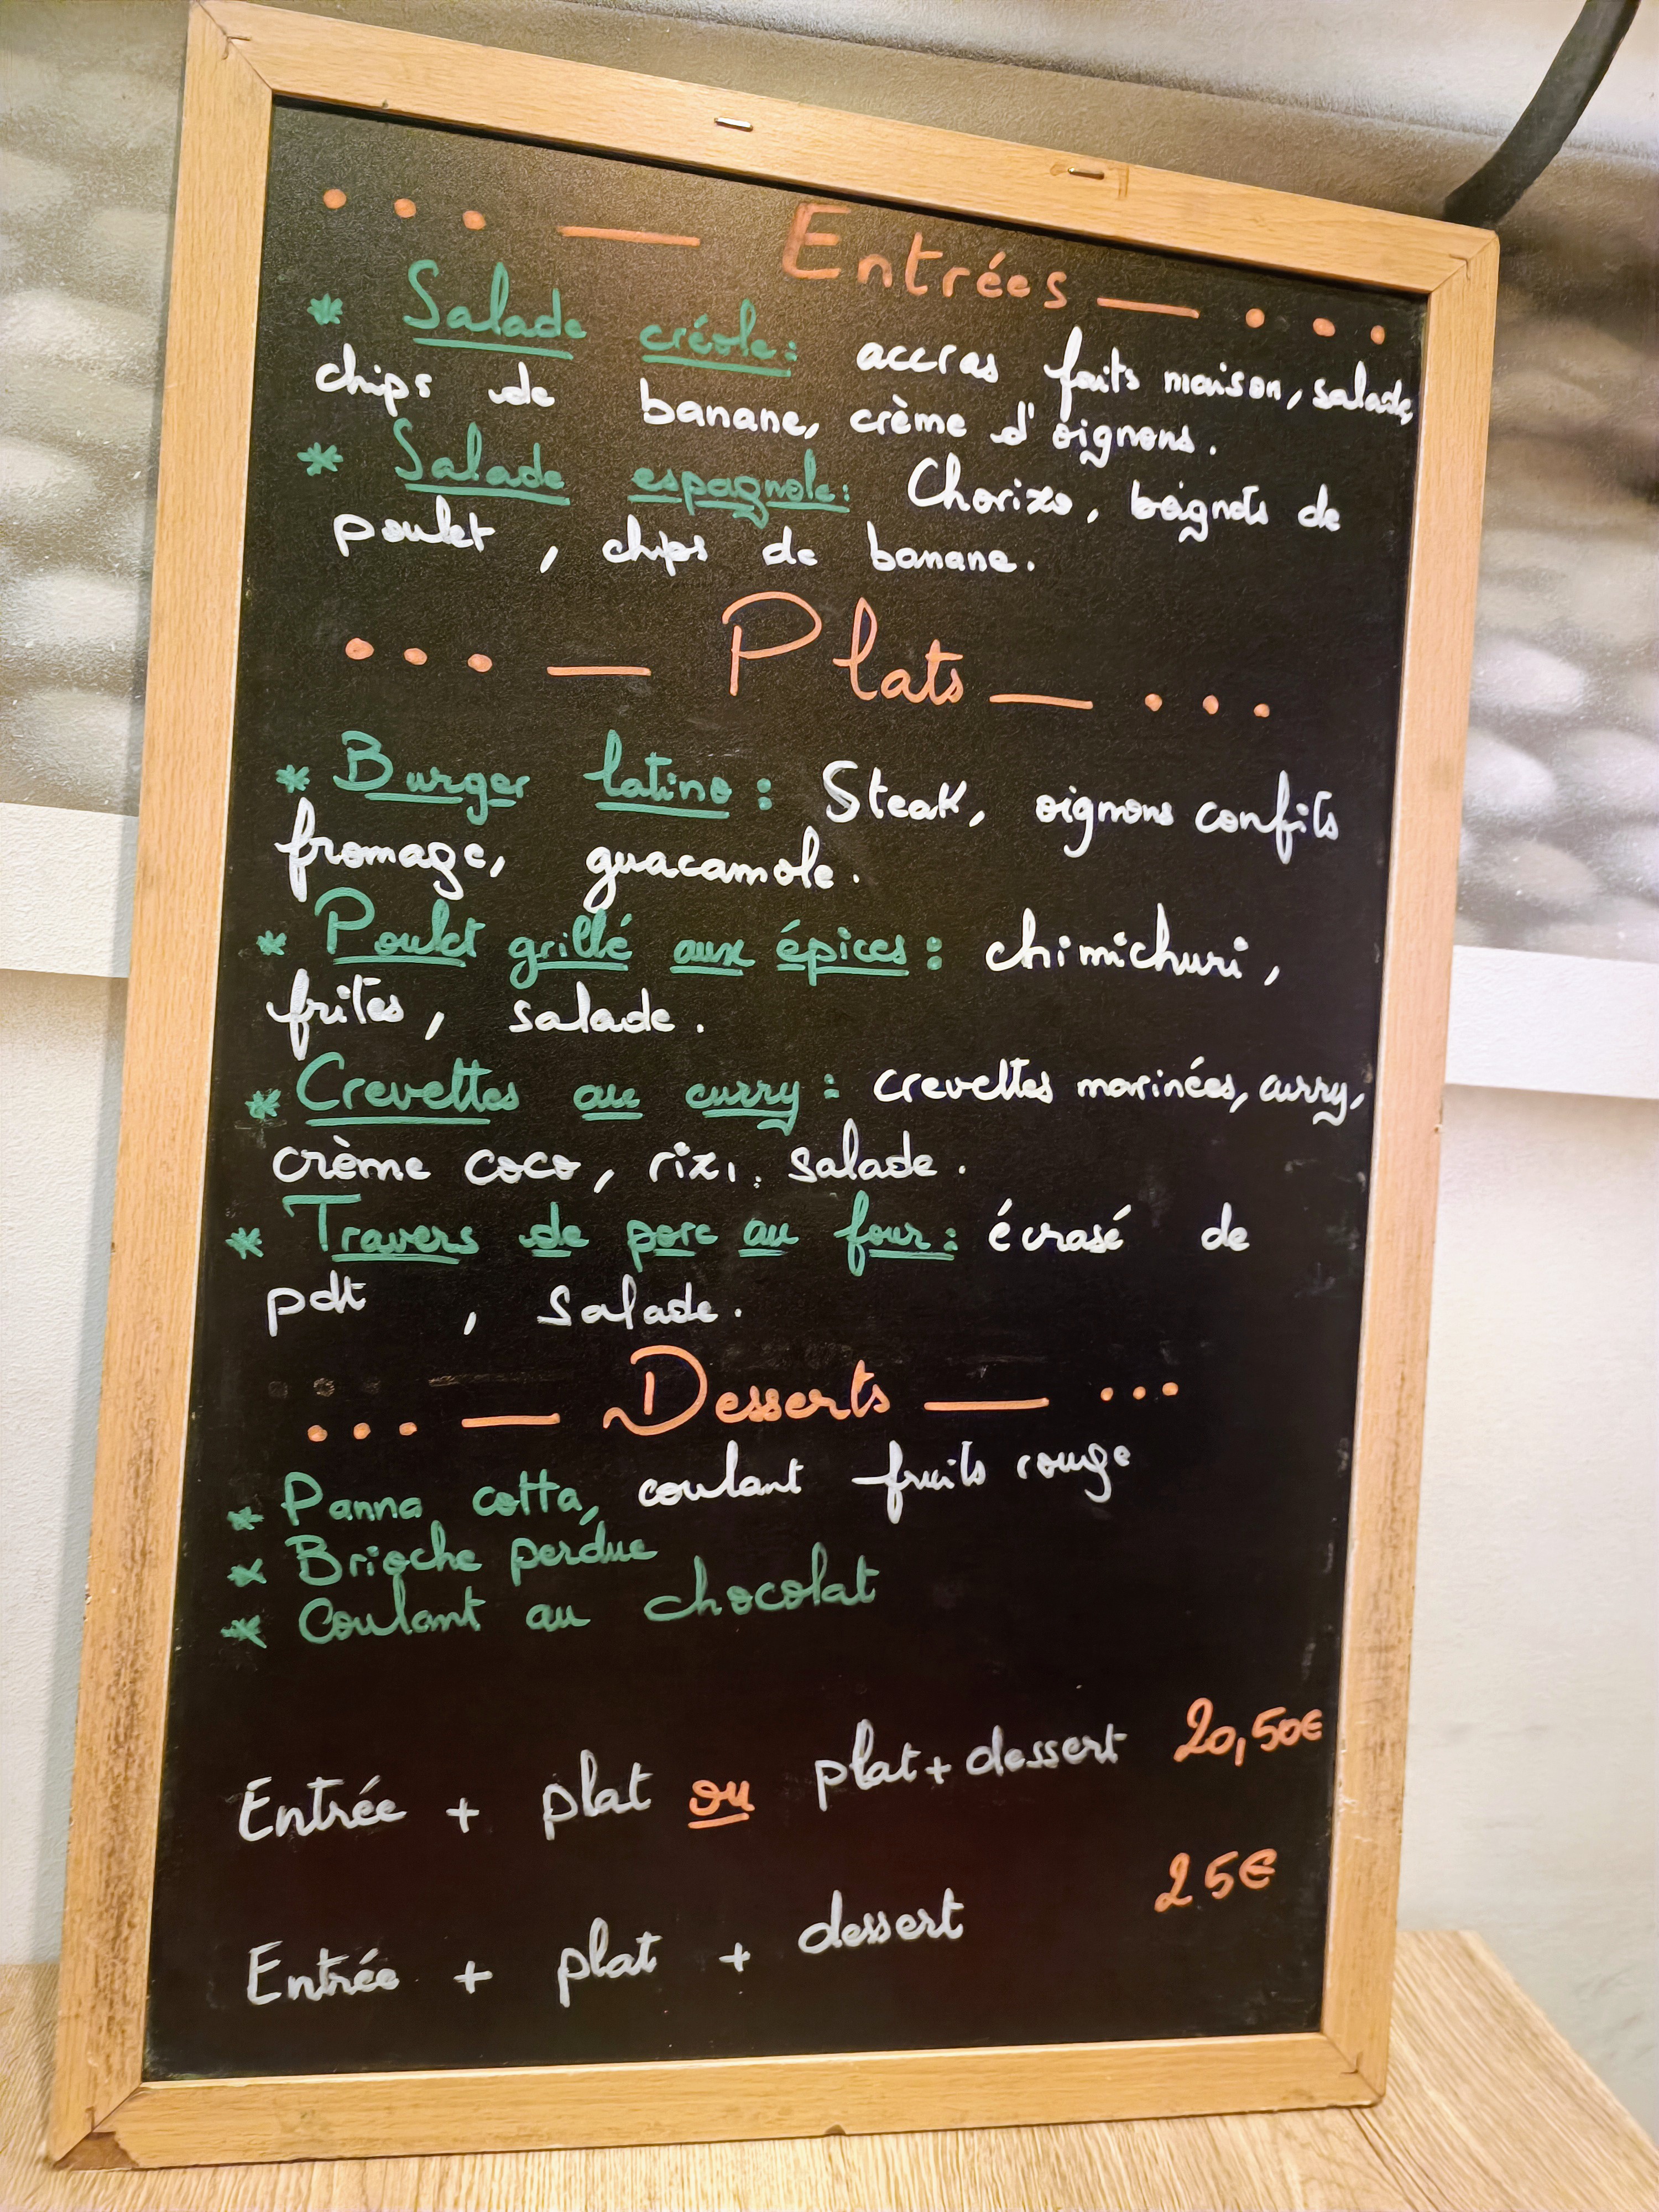 Entrées
* Salade créole: accras faits maison, salade,
chips de banane, crème d'oignons.
* Salade espagnole: Chorizo, beignets de
poulet, chips de banane.
Plats
* Burger latino: Steak, oignons confits
fromage, guacamole.
* Poulet grillé aux épices: chimichuri,
frites, salade.
* Crevettes au curry: crevettes marinées, curry,
crème coco, riz, salade.
* Travers de porc au four: écrasé de
pdt, salade.
Desserts
* Panna cotta, coulant fruits rouge
* Brioche perdue
* Coulant au chocolat
Entrée + plat ou plat + dessert 20,50€
Entrée + plat + dessert 25€